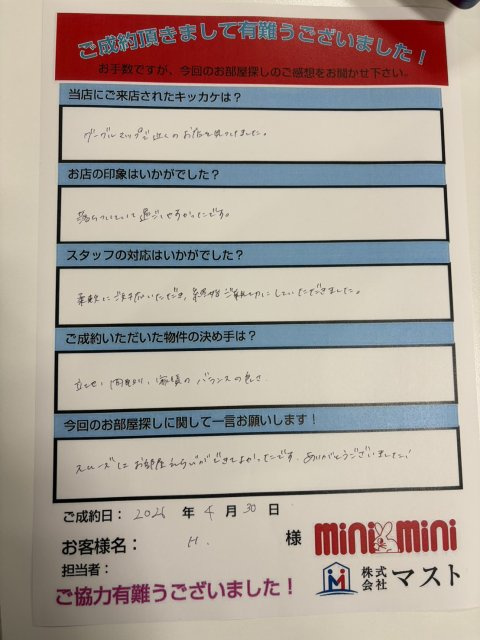 ご成約頂きまして有難うございました！
お手数ですが、今回のお部屋探しのご感想をお聞かせ下さい。
当店にご来店されたキッカケは？
グーグルマップで近くのお店を見つけました。
お店の印象はいかがでした？
落ちついていて過ごしやすかったです。
スタッフの対応はいかがでした？
柔軟にご対応いただき、ご親切にしていただきました。
ご成約いただいた物件の決め手は？
立地、間取り、家賃のバランスの良さ
今回のお部屋探しに関して一言お願いします！
スムーズにお部屋えらびができてよかったです。ありがとうございました！
ご成約日： 2026 年 4 月 30 日
お客様名： H. 様
mini mini
担当者：
株式会社 マスト
ご協力有難うございました！